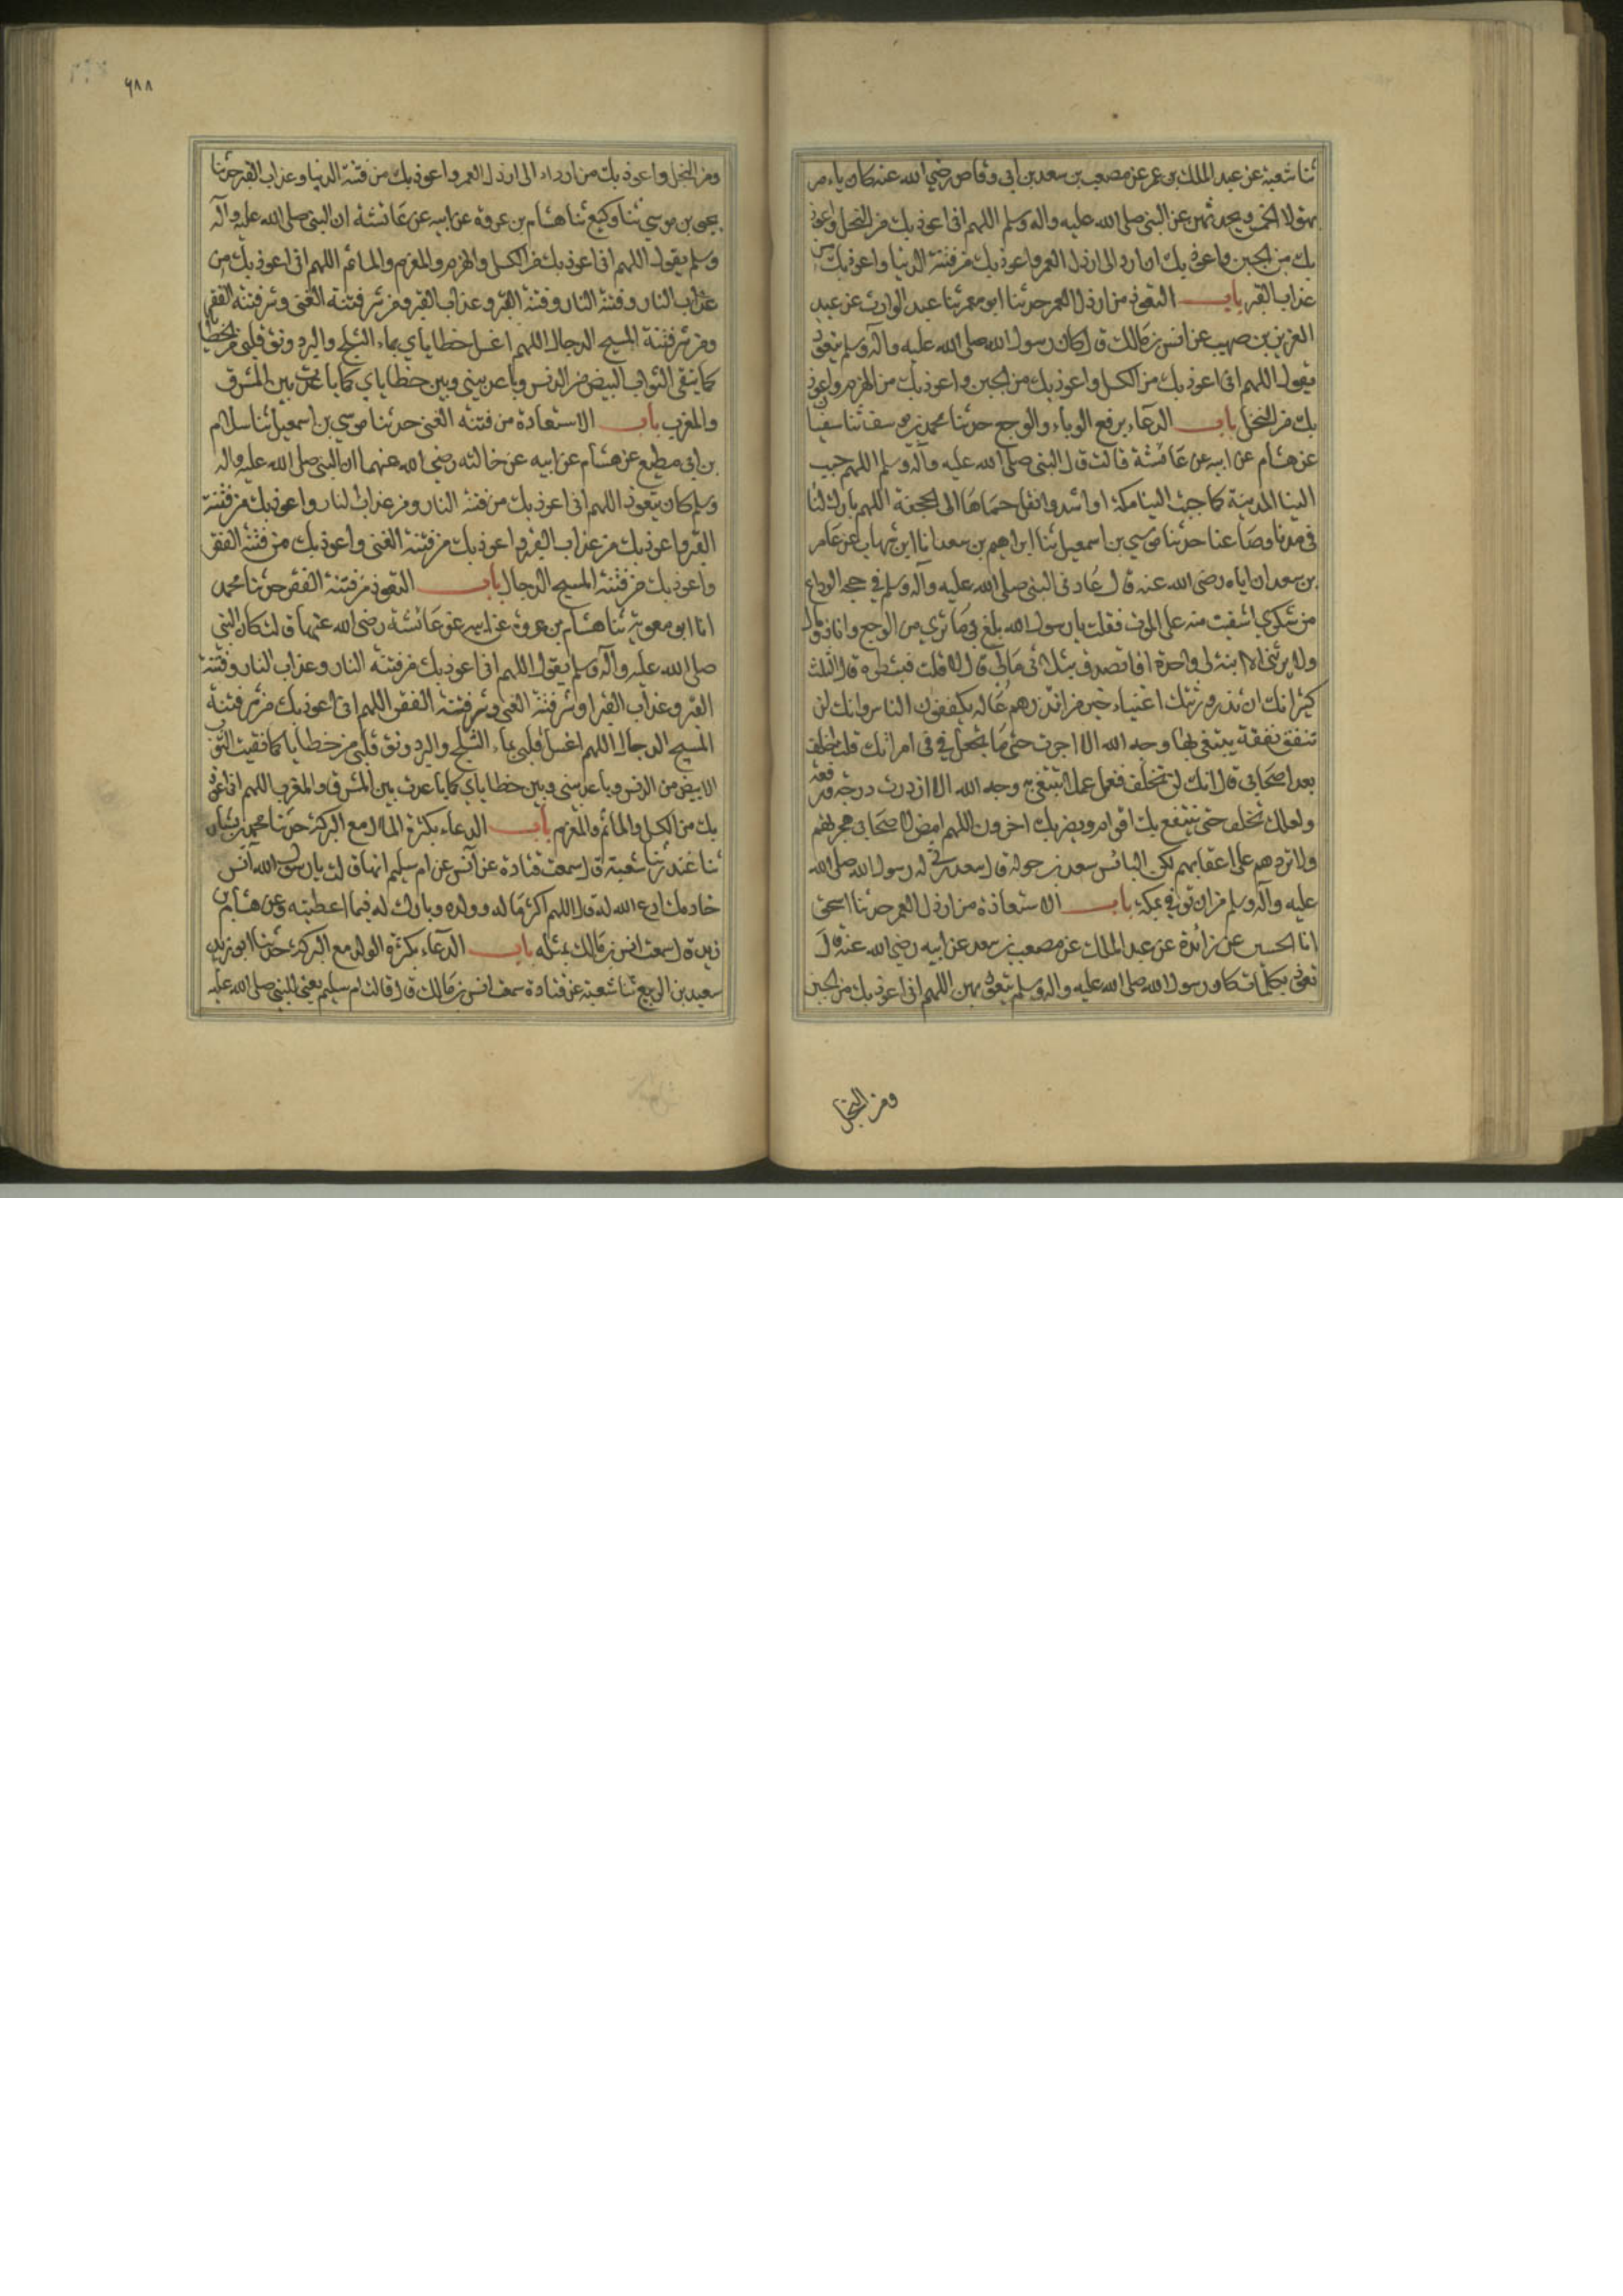 ثنا شعبة عن عبد الملك بن عمر عن مصعب بن سعد بن ابى وقاص رضي الله عنه كان يامر
بهؤلا الخمس ويحدثهن عن النبى صلى الله عليه واله وسلم اللهم انى اعوذ بك من البخل واعوذ
بك من الجبن واعوذ بك ان ارد الى ارذل العمر واعوذ بك من فتنة الدنيا واعوذ بك من
عذاب القبر باب التعوذ من ارذل العمر حدثنا ابو معمر ثنا عبد الوارث عن عبد
العزيز بن صهيب عن انس بن مالك قال كان رسول الله صلى الله عليه واله وسلم يتعوذ
يقول اللهم انى اعوذ بك من الكسل واعوذ بك من الجبن واعوذ بك من الهرم واعوذ
بك من البخل باب الدعاء برفع الوباء والوجع حدثنا محمد بن يوسف ثنا سفيان
عن هشام عن ابيه عن عائشة قالت قال النبى صلى الله عليه واله وسلم اللهم حبب
الينا المدينة كما حببت الينا مكة او اشد وانقل حماها الى الجحفة اللهم بارك لنا
فى مدنا وصاعنا حدثنا موسي بن اسمعيل ثنا ابراهيم بن سعد انا ابن شهاب عن عامر
بن سعد ان اباه رضى الله عنه قال عادنى النبى صلى الله عليه واله وسلم في حجة الوداع
من شكوي اشفيت منه على الموت فقلت يا رسول الله بلغ بى ما تري من الوجع وانا ذو مال
ولا يرثنى الا ابنة لى واحدة افاتصدق بثلثى مالى قال لا قلت فبشطره قال الثلث
كثير انك ان تذر ورثتك اغنياء خير من ان تذرهم عالة يتكففون الناس وانك لن
تنفق نفقة يبتغى بها وجه الله الا اجرت حتى ما تجعل في فى امراتك قلت اخلف
بعد اصحابى قال انك لن تخلف فعمل عملا تبتغي به وجه الله الا ازددت درجة ورفعة
ولعلك تخلف حتى ينتفع بك اقوام ويضر بك اخرون اللهم امض لاصحابى هجرتهم
ولا تردهم على اعقابهم لكن البائس سعد بن خولة قال سعد رثى له رسول الله صلى الله
عليه واله وسلم من ان توفي بمكة باب الاستعاذة من ارذل العمر حدثنا اسحق
انا الحسين عن زائدة عن عبد الملك عن مصعب بن سعد عن ابيه رضي الله عنه قال
تعوذوا بكلمات كان رسول الله صلى الله عليه واله وسلم يتعوذ بهن اللهم انى اعوذ بك من الجبن
ومن البخل
٦٨٨
ومن البخل واعوذ بك من ان ارد الى ارذل العمر واعوذ بك من فتنة الدنيا وعذاب القبر حدثنا
يحيى بن موسي ثنا وكيع ثنا هشام بن عروة عن ابيه عن عائشة ان النبى صلى الله عليه واله
وسلم يقول اللهم انى اعوذ بك من الكسل والهرم والمغرم والمأثم اللهم انى اعوذ بك من
عذاب النار وفتنة النار وفتنة القبر وعذاب القبر ومن شر فتنة الغنى وشر فتنة الفقر
ومن شر فتنة المسيح الدجال اللهم اغسل خطاياي بماء الثلج والبرد ونق قلبى من الخطايا
كما ينقى الثوب البيض من الدنس وباعد بينى وبين خطاياي كما باعدت بين المشرق
والمغرب باب الاستعاذة من فتنة الغنى حدثنا موسي بن اسمعيل ثنا سلام
بن ابى مطيع عن هشام عن ابيه عن خالته رضي الله عنهما ان النبى صلى الله عليه واله
وسلم كان يتعوذ اللهم انى اعوذ بك من فتنة النار ومن عذاب النار واعوذ بك من فتنة
القبر واعوذ بك من عذاب القبر واعوذ بك من فتنة الغنى واعوذ بك من فتنة الفقر
واعوذ بك من فتنة المسيح الدجال باب التعوذ من فتنة الفقر حدثنا محمد
انا ابو معوية ثنا هشام بن عروة عن ابيه عن عائشة رضى الله عنها قالت كان النبى
صلى الله عليه واله وسلم يقول اللهم انى اعوذ بك من فتنة النار وعذاب النار وفتنة
القبر وعذاب القبر او شر فتنة الغنى وشر فتنة الفقر اللهم انى اعوذ بك من شر فتنة
المسيح الدجال اللهم اغسل قلبى بماء الثلج والبرد ونق قلبى من خطايا كما نقيت الثوب
الابيض من الدنس وباعد بينى وبين خطاياي كما باعدت بين المشرق والمغرب اللهم انى اعوذ
بك من الكسل والمأثم والمغرم باب الدعاء بكثرة المال مع البركة حدثنا محمد بن بشار
ثنا غندر ثنا شعبة قال سمعت قتادة عن انس عن ام سليم انها قالت يا رسول الله انس
خادمك ادع الله له قال اللهم اكثر ماله وولده وبارك له فيما اعطيته وعن هشام بن
زيد قال سمعت انس بن مالك بمثله باب الدعاء بكثرة الولد مع البركة حدثنا ابو زيد
سعيد بن الربيع ثنا شعبة عن قتادة سمعت انس بن مالك قال قالت ام سليم يعنى للنبى صلى الله عليه